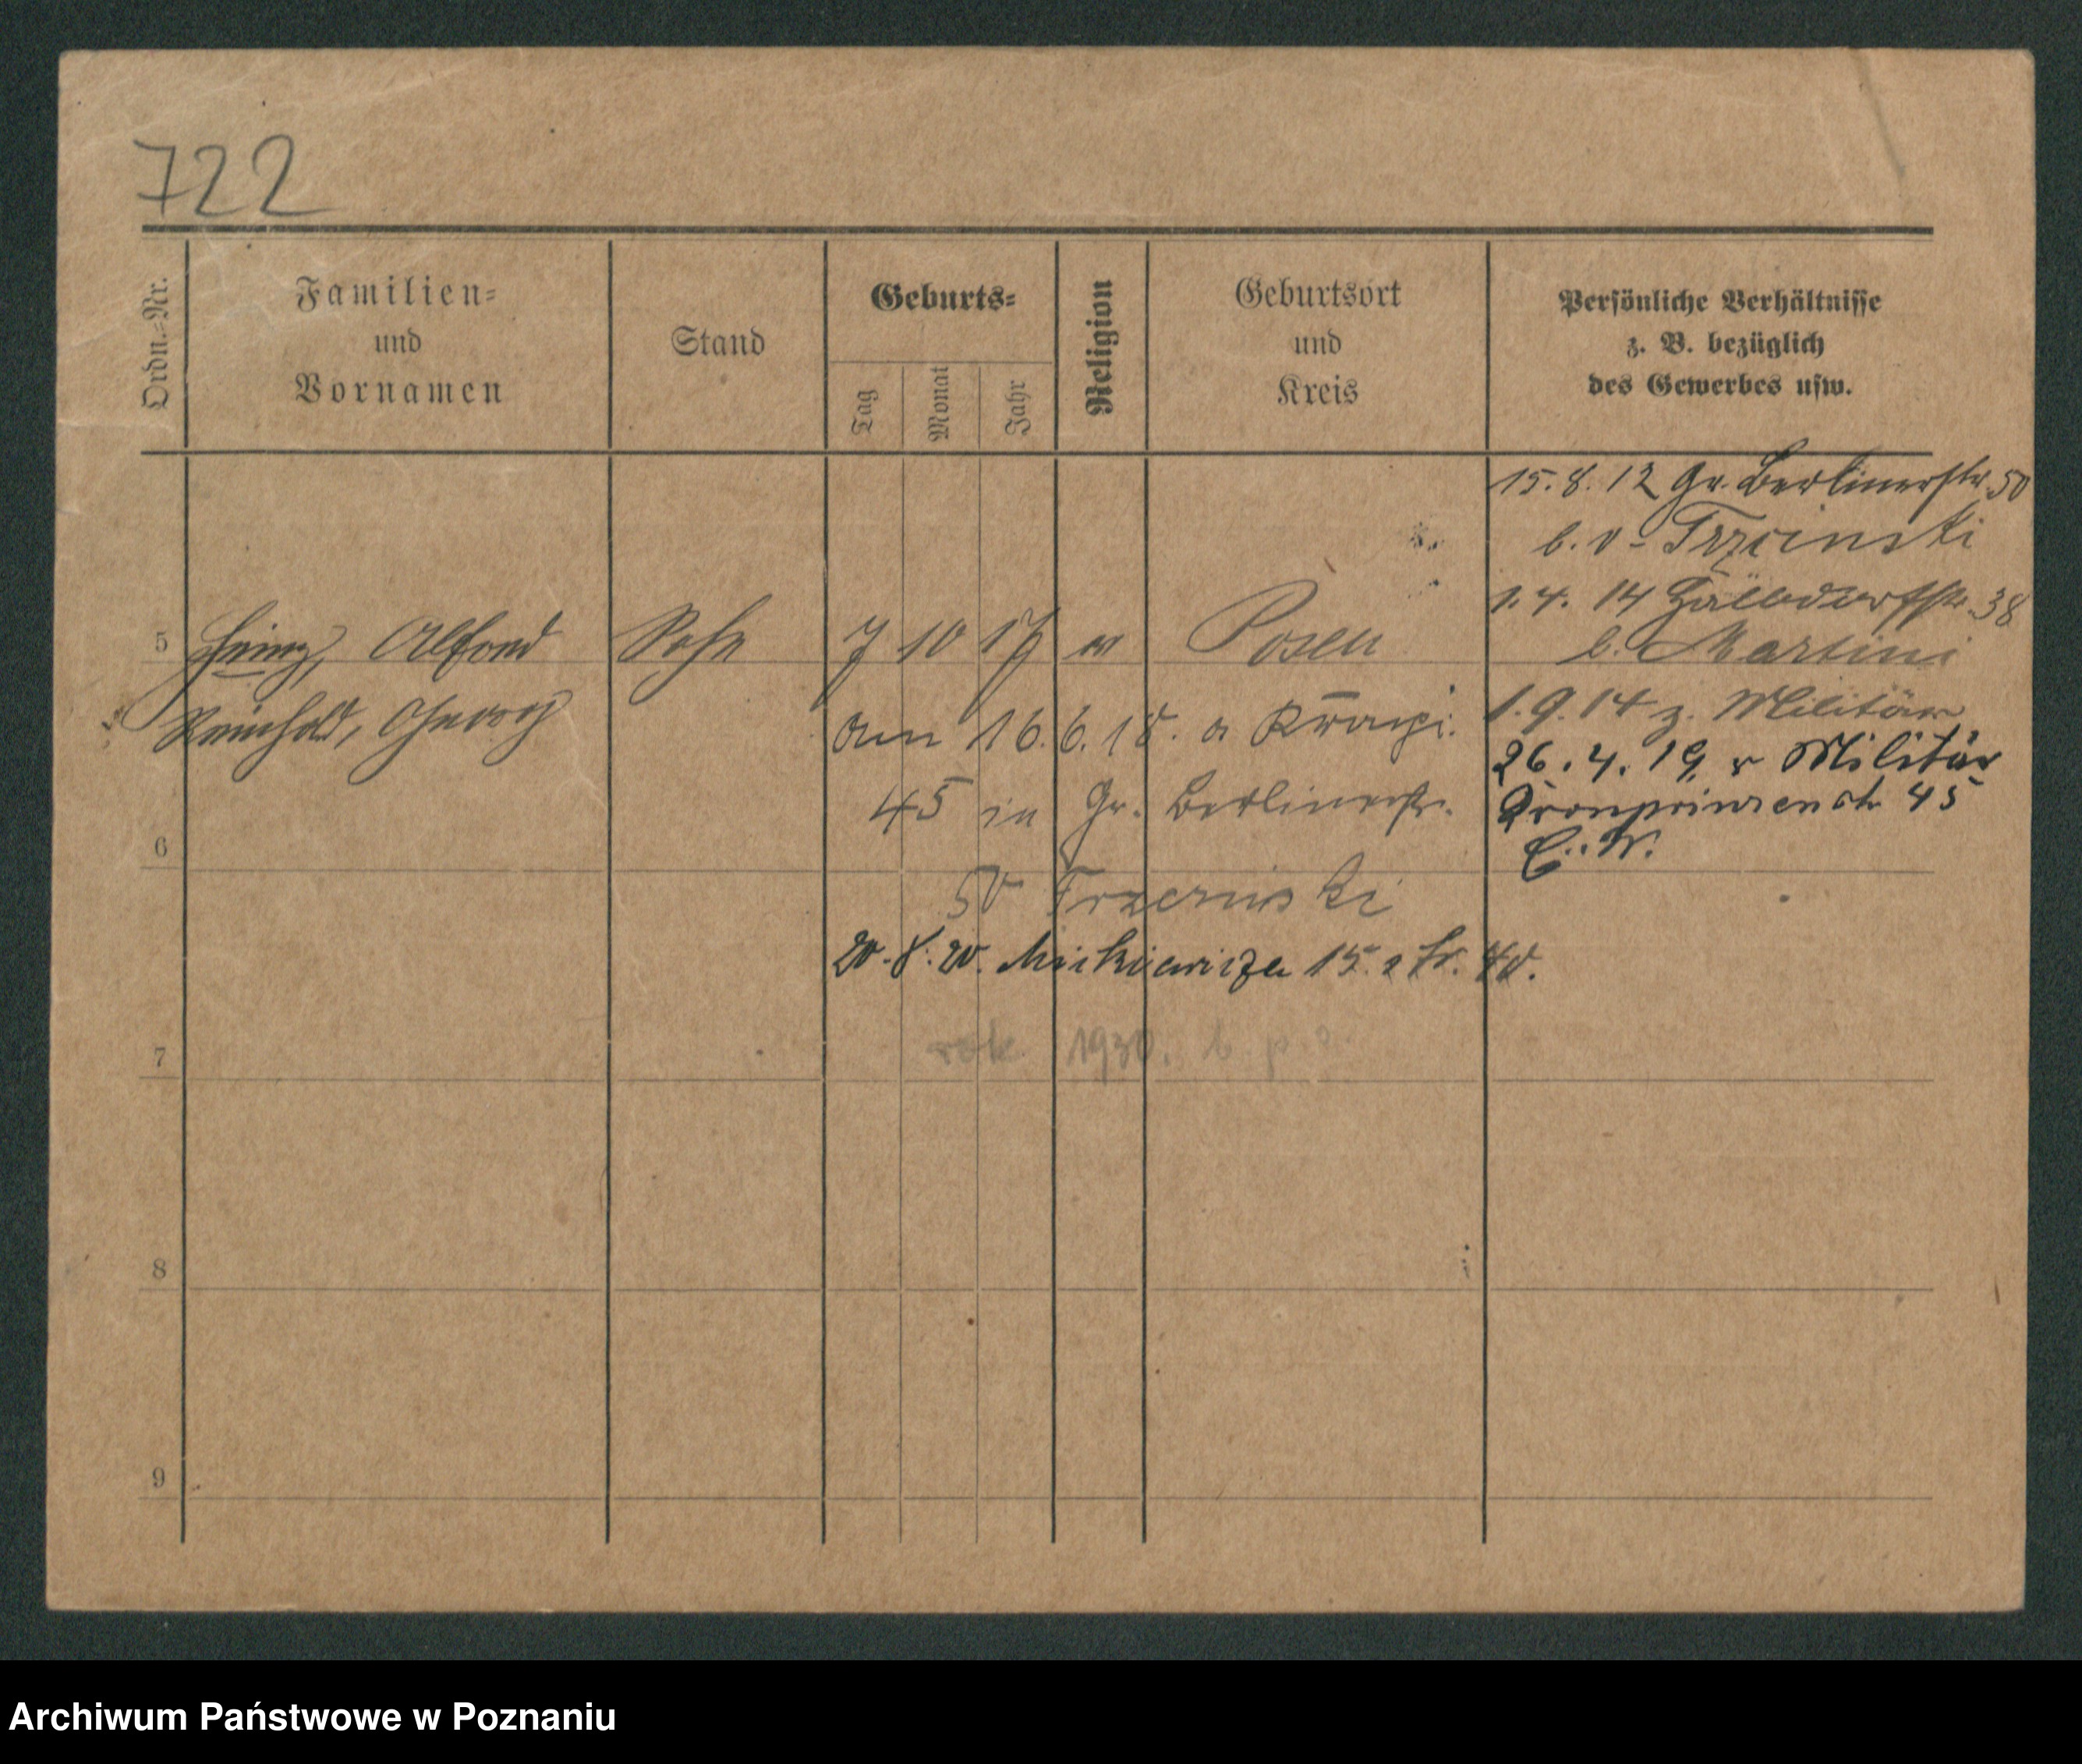 722
Ordn.-Nr.
Familien-
und
Vornamen
Stand
Geburts-
Tag
Monat
Jahr
Religion
Geburtsort
und
Kreis
Persönliche Verhältnisse
z. B. bezüglich
des Gewerbes usw.
15.8.12 Gr. Berlinerstr. 50
b. v.
1.4.14 38
b. Martini
5 Heinz, Alfred Sohn 7 10 17 Posen
Reinhold, Georg
1.9.14 z. Militär
am 16.6.18. a
26.4.19 v Militär
45 in Gr. Berlinerstr.
Kronprinzenstr 45
E. W.
6
50
20.8.20. Mickiewicza 15.
rok 1930. b. p.
7
8
9
Archiwum Państwowe w Poznaniu